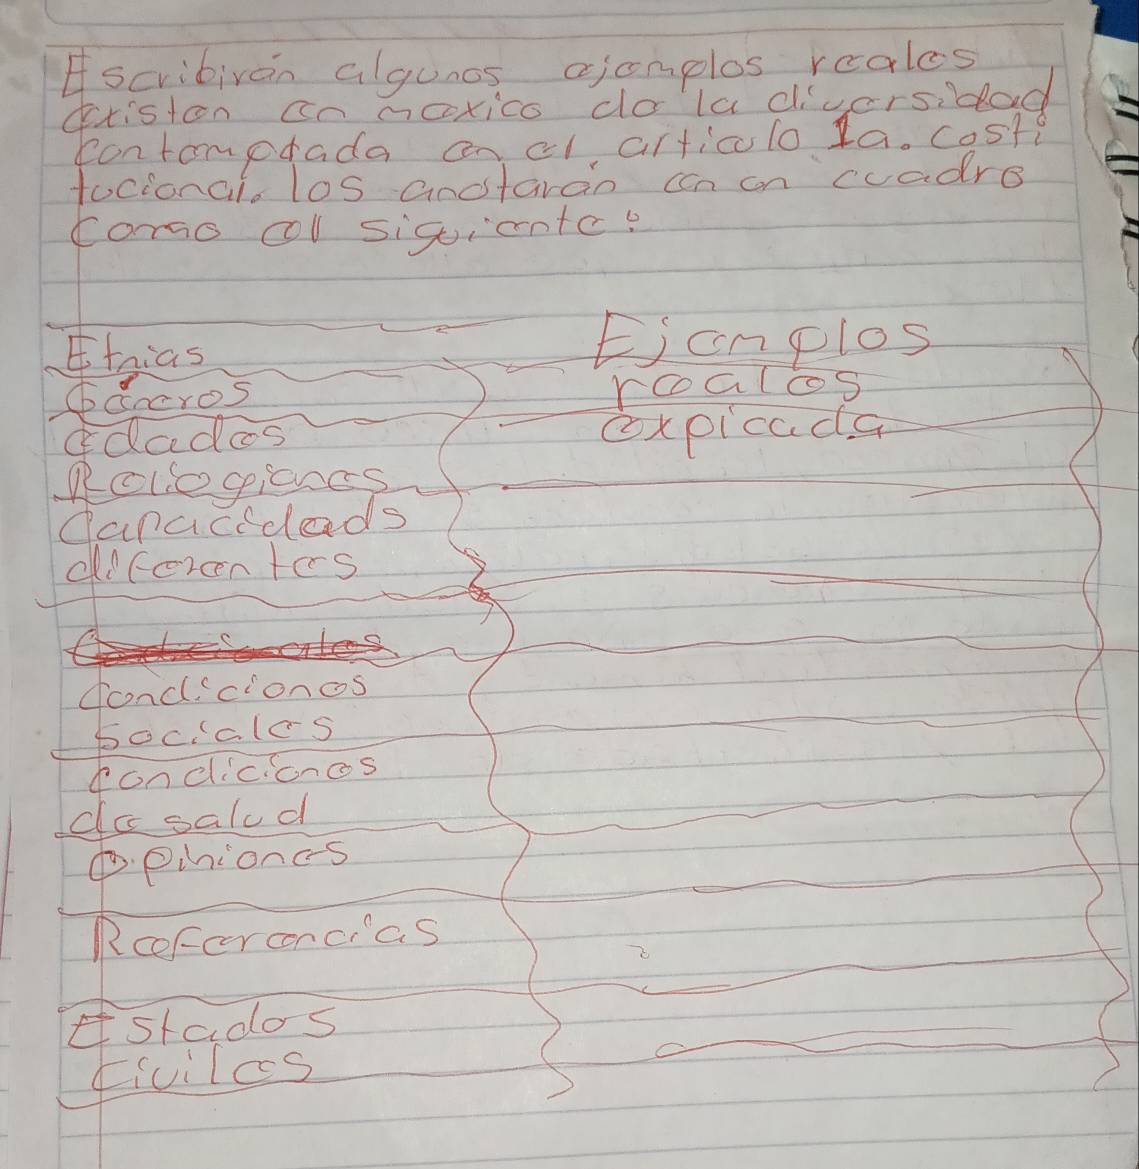 Escribirán algunos ejemplos reales
existen en mexico de la diversidad
contempdada en el articulo 1a. costi
tucional. los anotarán en en cuadro
como el siguiente:
Etnias
Ejemplos
Géneros
reales
edades
expicada
Religiones
Capacidads
diferentes
Condiciones
Sociales
condiciones
de salud
opiniones
Referencias
Estados
Civiles